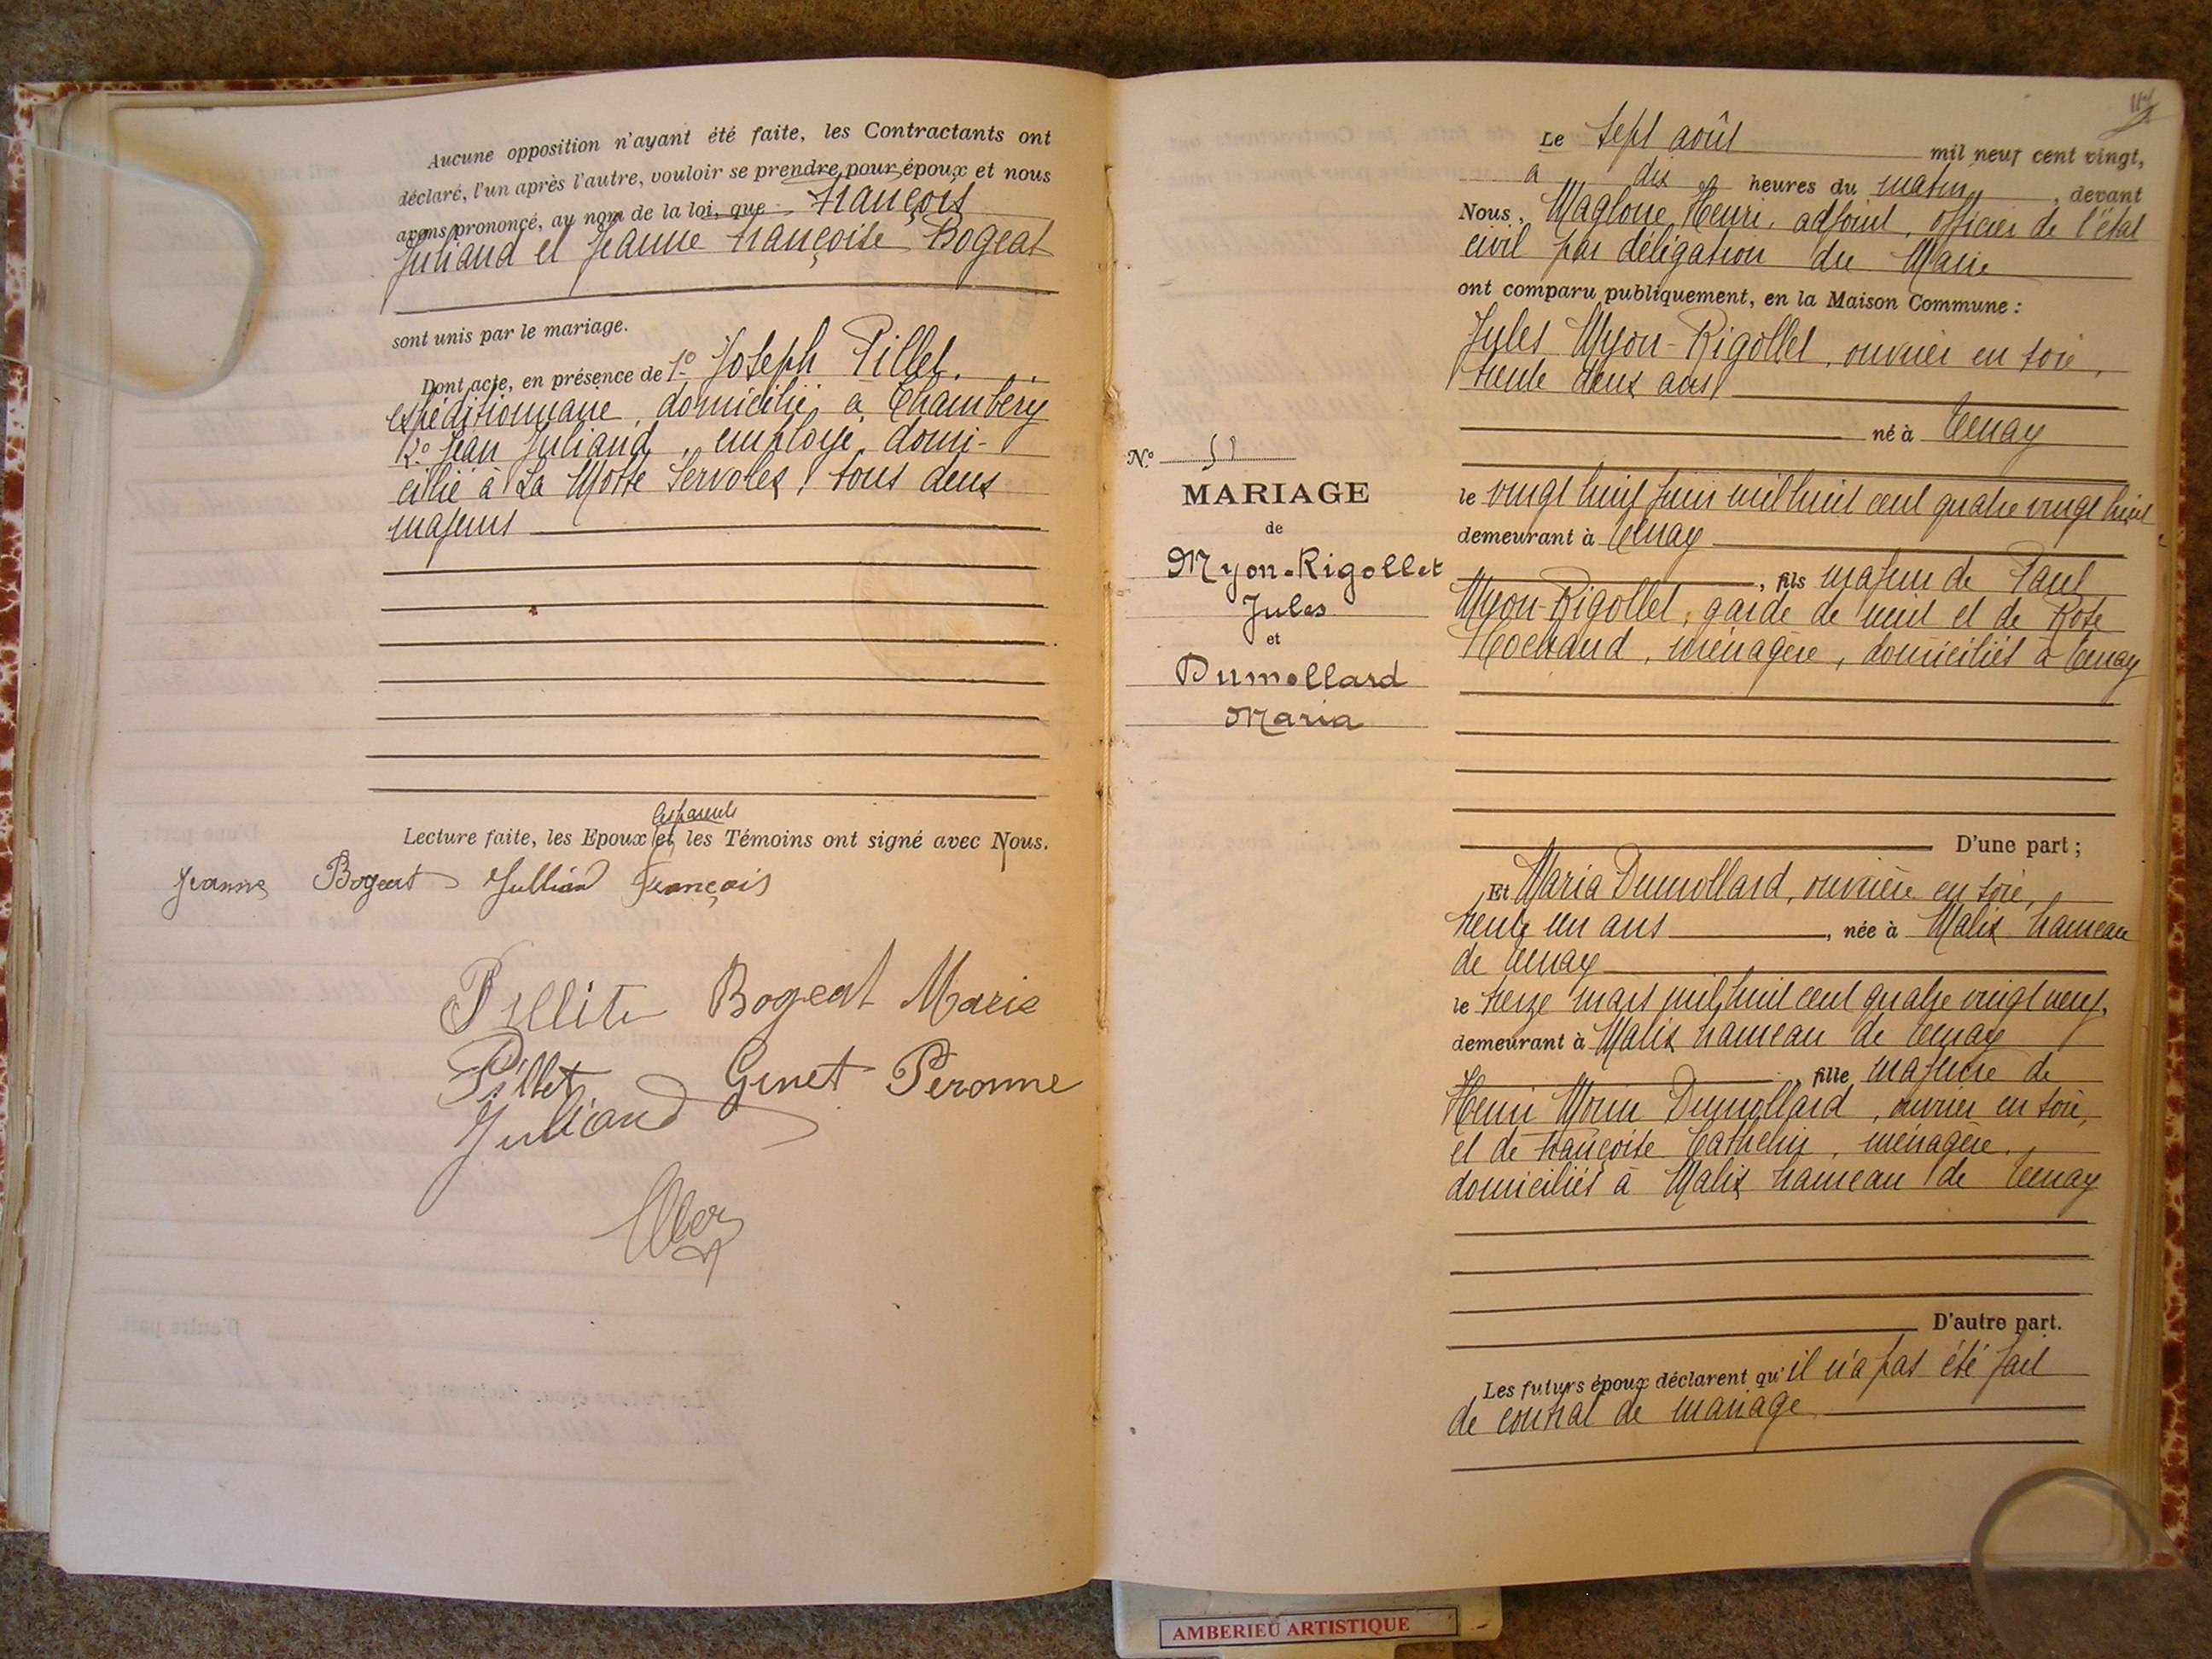 Aucune opposition n'ayant été faite, les Contractants ont
déclaré, l'un après l'autre, vouloir se prendre pour époux et nous
avons prononcé, au nom de la loi, que François
Juliand et Jeanne Françoise Bogeat
sont unis par le mariage.
Dont acte, en présence de 1º Joseph Pillet,
expéditionnaire, domicilié à Chambéry
2º Jean Juliand, employé, domi-
cilié à La Motte Servolex, tous deux
majeurs
les parents
Lecture faite, les Epoux et les Témoins ont signé avec Nous.
Jeanne Bogeat Julliand François
Bogeat Marie
Pillet Ginet Peronne
Juliand
Le sept août mil neuf cent vingt,
à dix heures du matin, devant
Nous, Magloire Henri, adjoint, officier de l'état
civil par délégation du Maire
ont comparu publiquement, en la Maison Commune :
Jules Myon-Rigollet, ouvrier en soie,
trente deux ans
né à Tenay
le vingt huit juin mil huit cent quatre vingt huit
demeurant à Tenay
, fils majeur de Paul
Myon-Rigollet, garde de nuit et de Rose
ménagère, domiciliés à Tenay
D'une part ;
Nº 51
MARIAGE
de
Myon-Rigollet
Jules
et
Dumollard
Maria
Et Maria Dumollard, ouvrière en soie,
trente un ans, née à Malix hameau
de Tenay
le treize mars mil huit cent quatre vingt neuf,
demeurant à Malix hameau de Tenay
, fille majeure de
Henri Morin Dumollard, ouvrier en soie,
et de Françoise Cathelin, ménagère,
domiciliés à Malix hameau de Tenay
D'autre part.
Les futurs époux déclarent qu'il n'a pas été fait
de contrat de mariage
AMBERIEU ARTISTIQUE